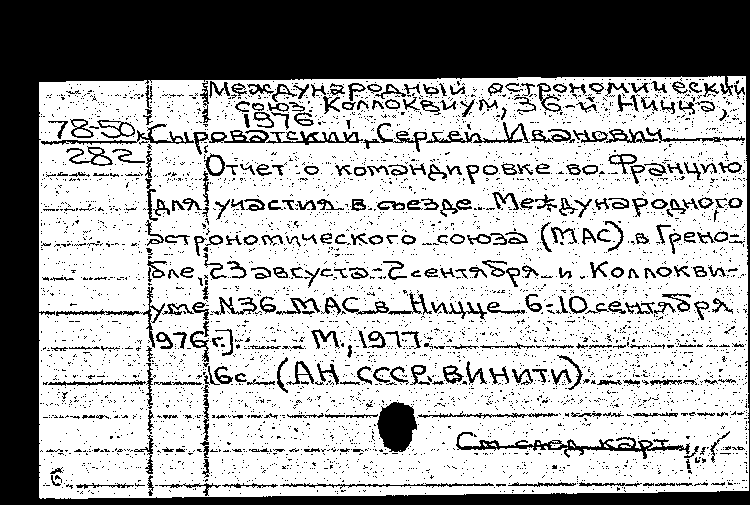 Международный астрономический
союз. Коллоквиум, 36-й Ницца,
1976.
78-50
282
Сыроватский, Сергей Иванович
Отчет о командировке во Францию
[для участия в съезде Международного
астрономического союза (МАС) в Грено-
бле, 23 августа-2 сентября и Коллокви-
уме №36 МАС в Ницце 6-10 сентября
1976 г.]. М., 1977.
16с (АН СССР. ВИНИТИ).
См след. карт
6